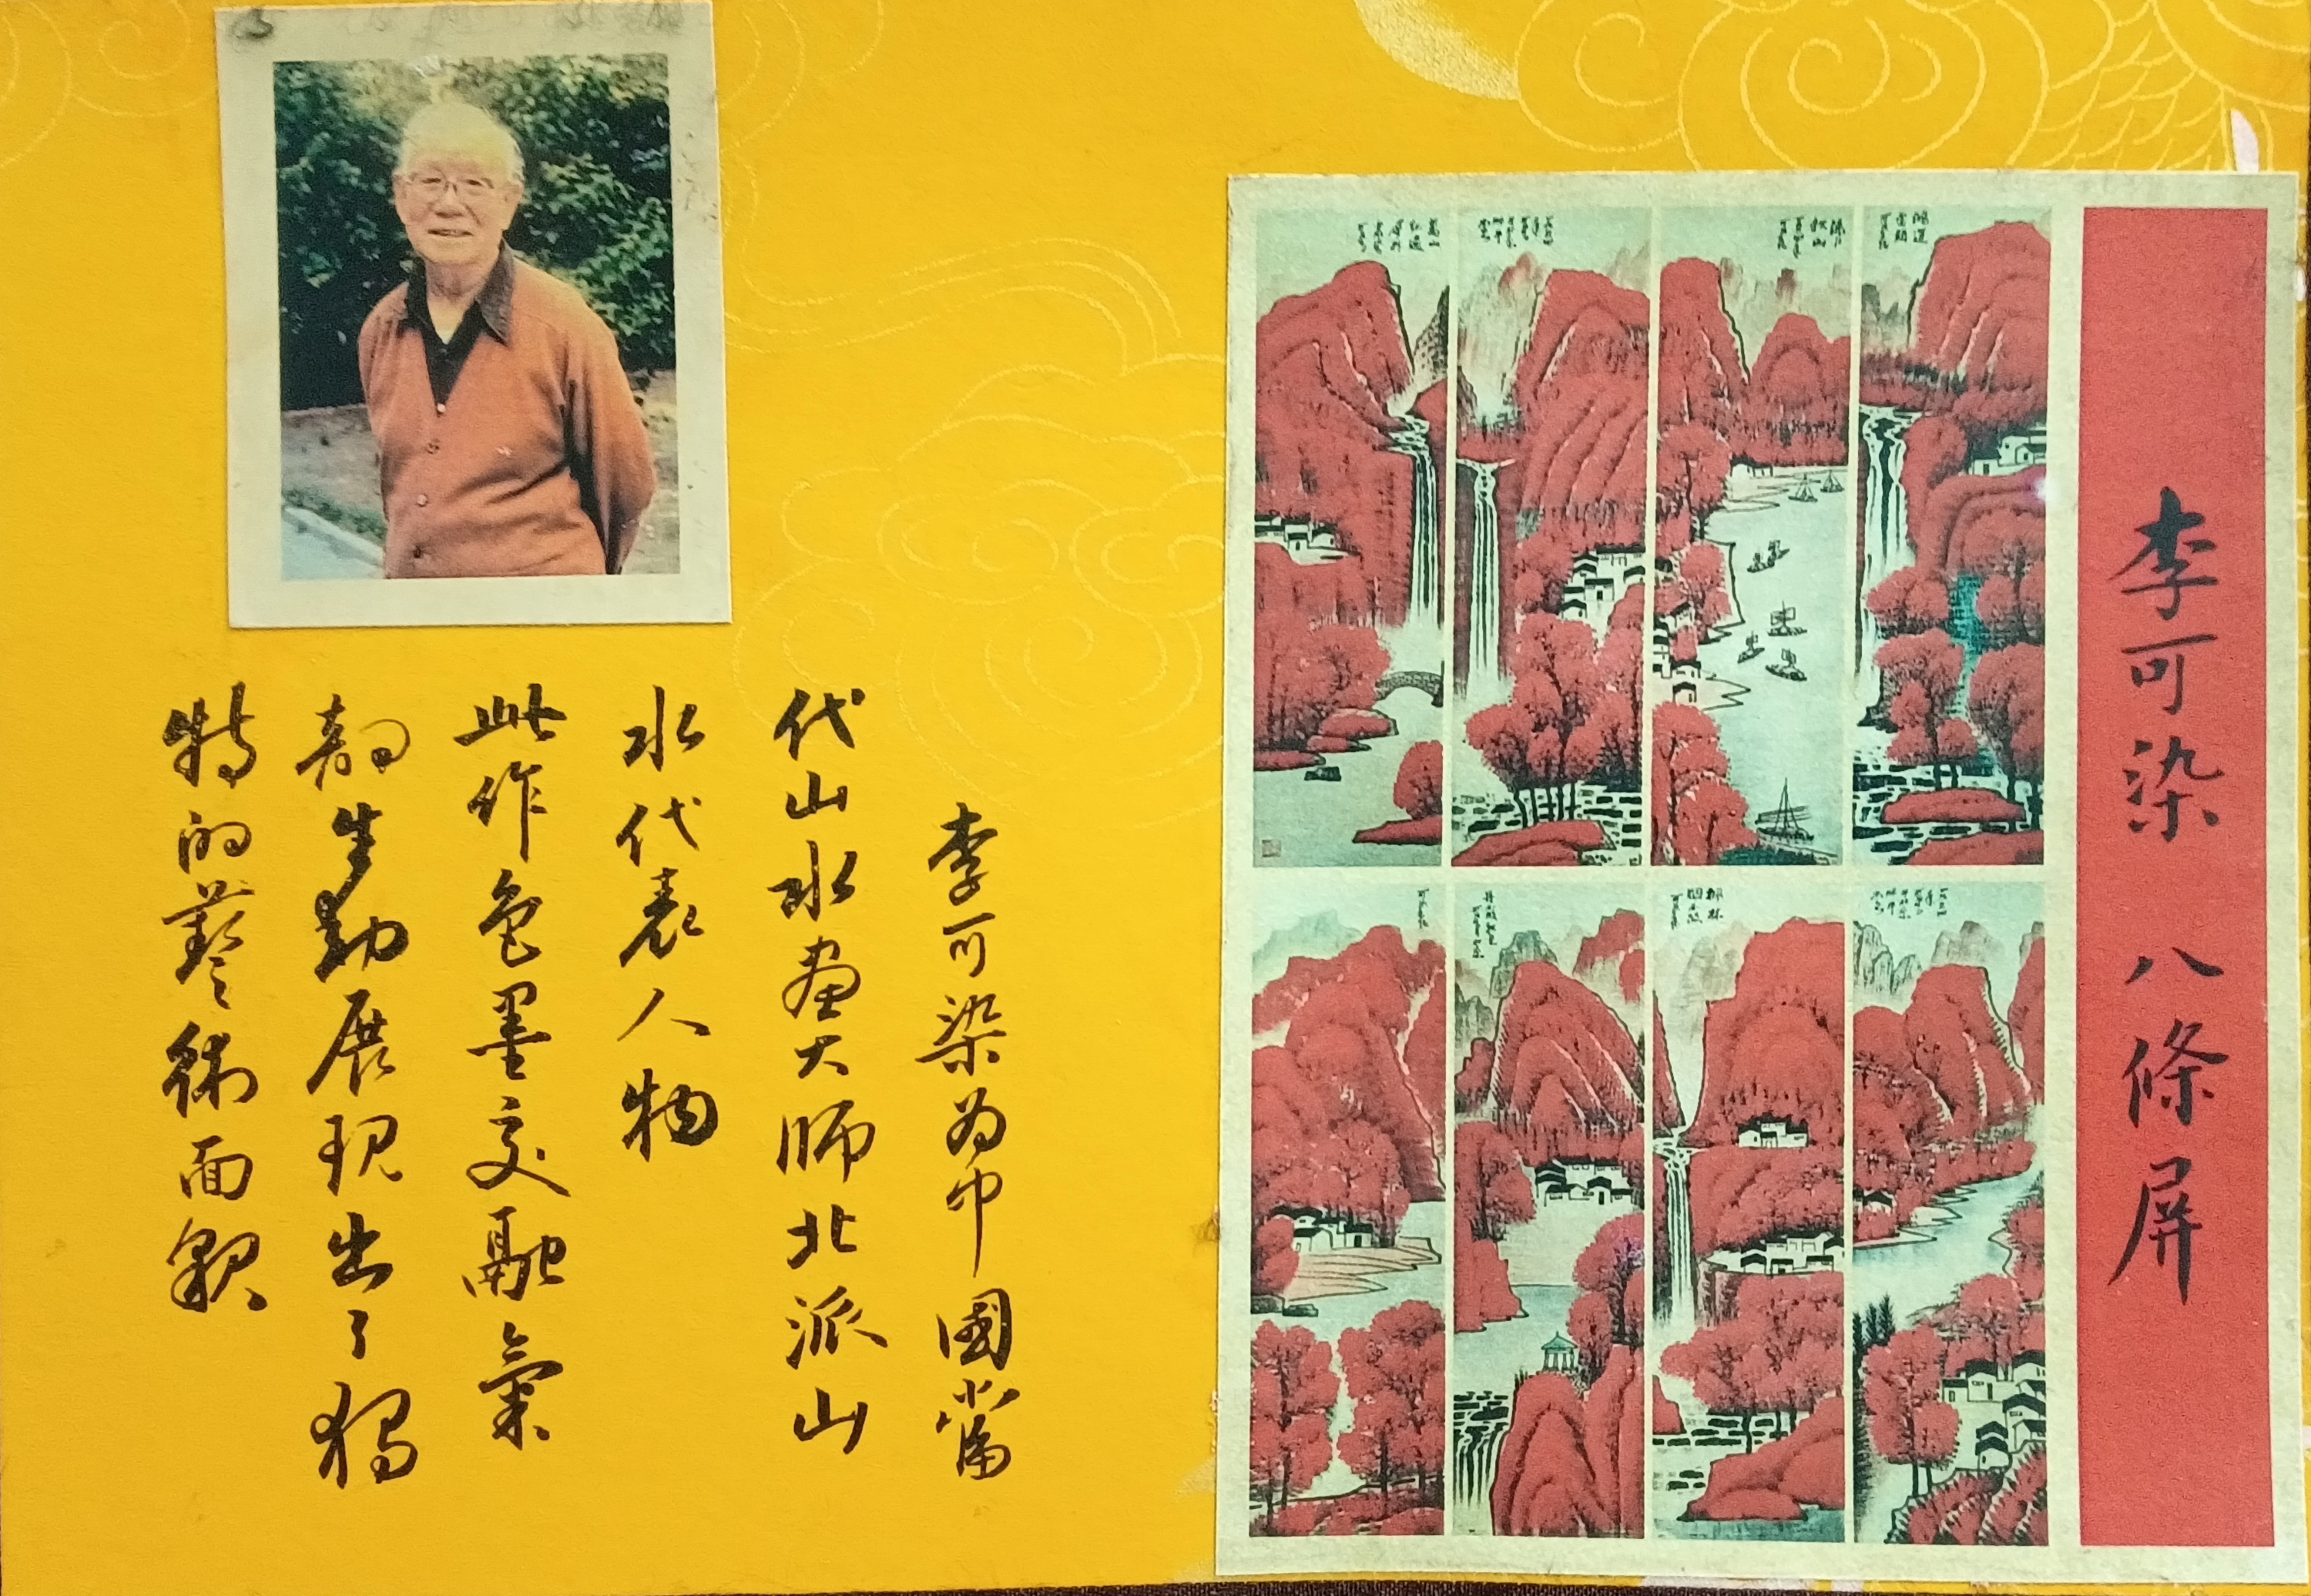 李可染 八條屏
李可染为中國當
代山水畫大師北派山
水代表人物
此作色墨交融氣
韵生動展現出了獨
特的藝術面貌